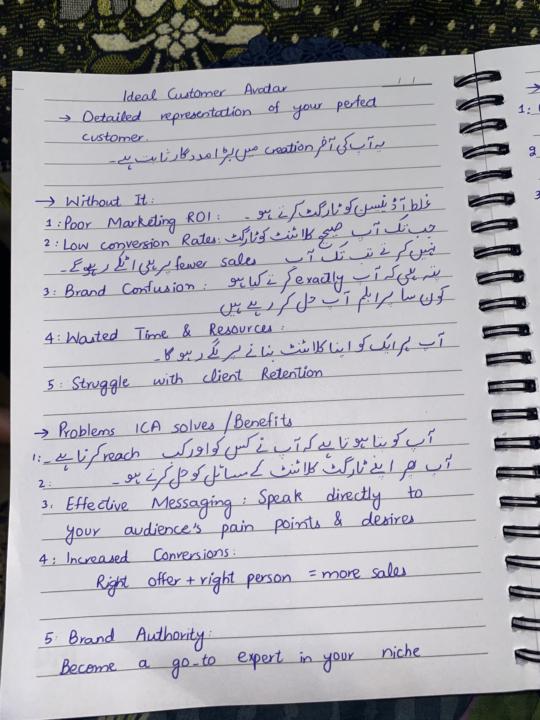 Ideal Customer Avatar
→ Detailed representation of your perfect
customer.
یہ آپ کی آفر creation میں بڑا مددگار ثابت ہے۔
→ Without It:
1: Poor Marketing ROI: غلط آڈینس کو ٹارگٹ کرتے ہو۔
2: Low conversion Rates: جب تک آپ صحیح کلائنٹ کو ٹارگٹ
نہیں کرتے تب تک آپ fewer sales پر ہی اٹکے رہو گے۔
3: Brand Confusion: پتہ نہیں کہ آپ exactly کرتے کیا ہو
کون سا پرابلم آپ حل کر رہے ہیں
4: Wasted Time & Resources:
آپ ہر ایک کو اپنا کلائنٹ بنانے پر لگے رہو گا۔
5: Struggle with client Retention
→ Problems ICA solves / Benefits
1: آپ کو پتا ہوتا ہے کہ آپ نے کس کو اور کب reach کرنا ہے۔
2: آپ پھر اپنے ٹارگٹ کلائنٹ کے مسائل کو حل کرتے ہو۔
3. Effective Messaging: Speak directly to
your audience's pain points & desires
4: Increased Conversions:
Right offer + right person = more sales
5: Brand Authority:
Become a go-to expert in your niche
1:
2
3